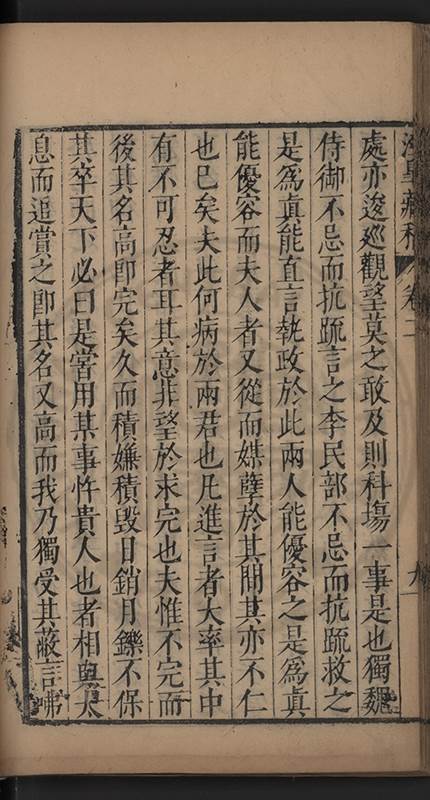 卷二
處亦逡巡觀望莫之敢及則科塲一事是也獨魏
侍御不忌而抗疏言之李民部不忌而抗疏救之
是爲眞能直言執政於此兩人能優容之是爲眞
能優容而夫人者又從而媒孽於其間其亦不仁
也已矣夫此何病於兩君也凡進言者大率其中
有不可忍者耳其意非望於求完也夫惟不完而
後其名高卽完矣久而積嫌積毀日銷月鑠不保
其卒天下必曰是甞用某事忤貴人也者相與太
息而追賞之卽其名又高而我乃獨受其蔽言咈